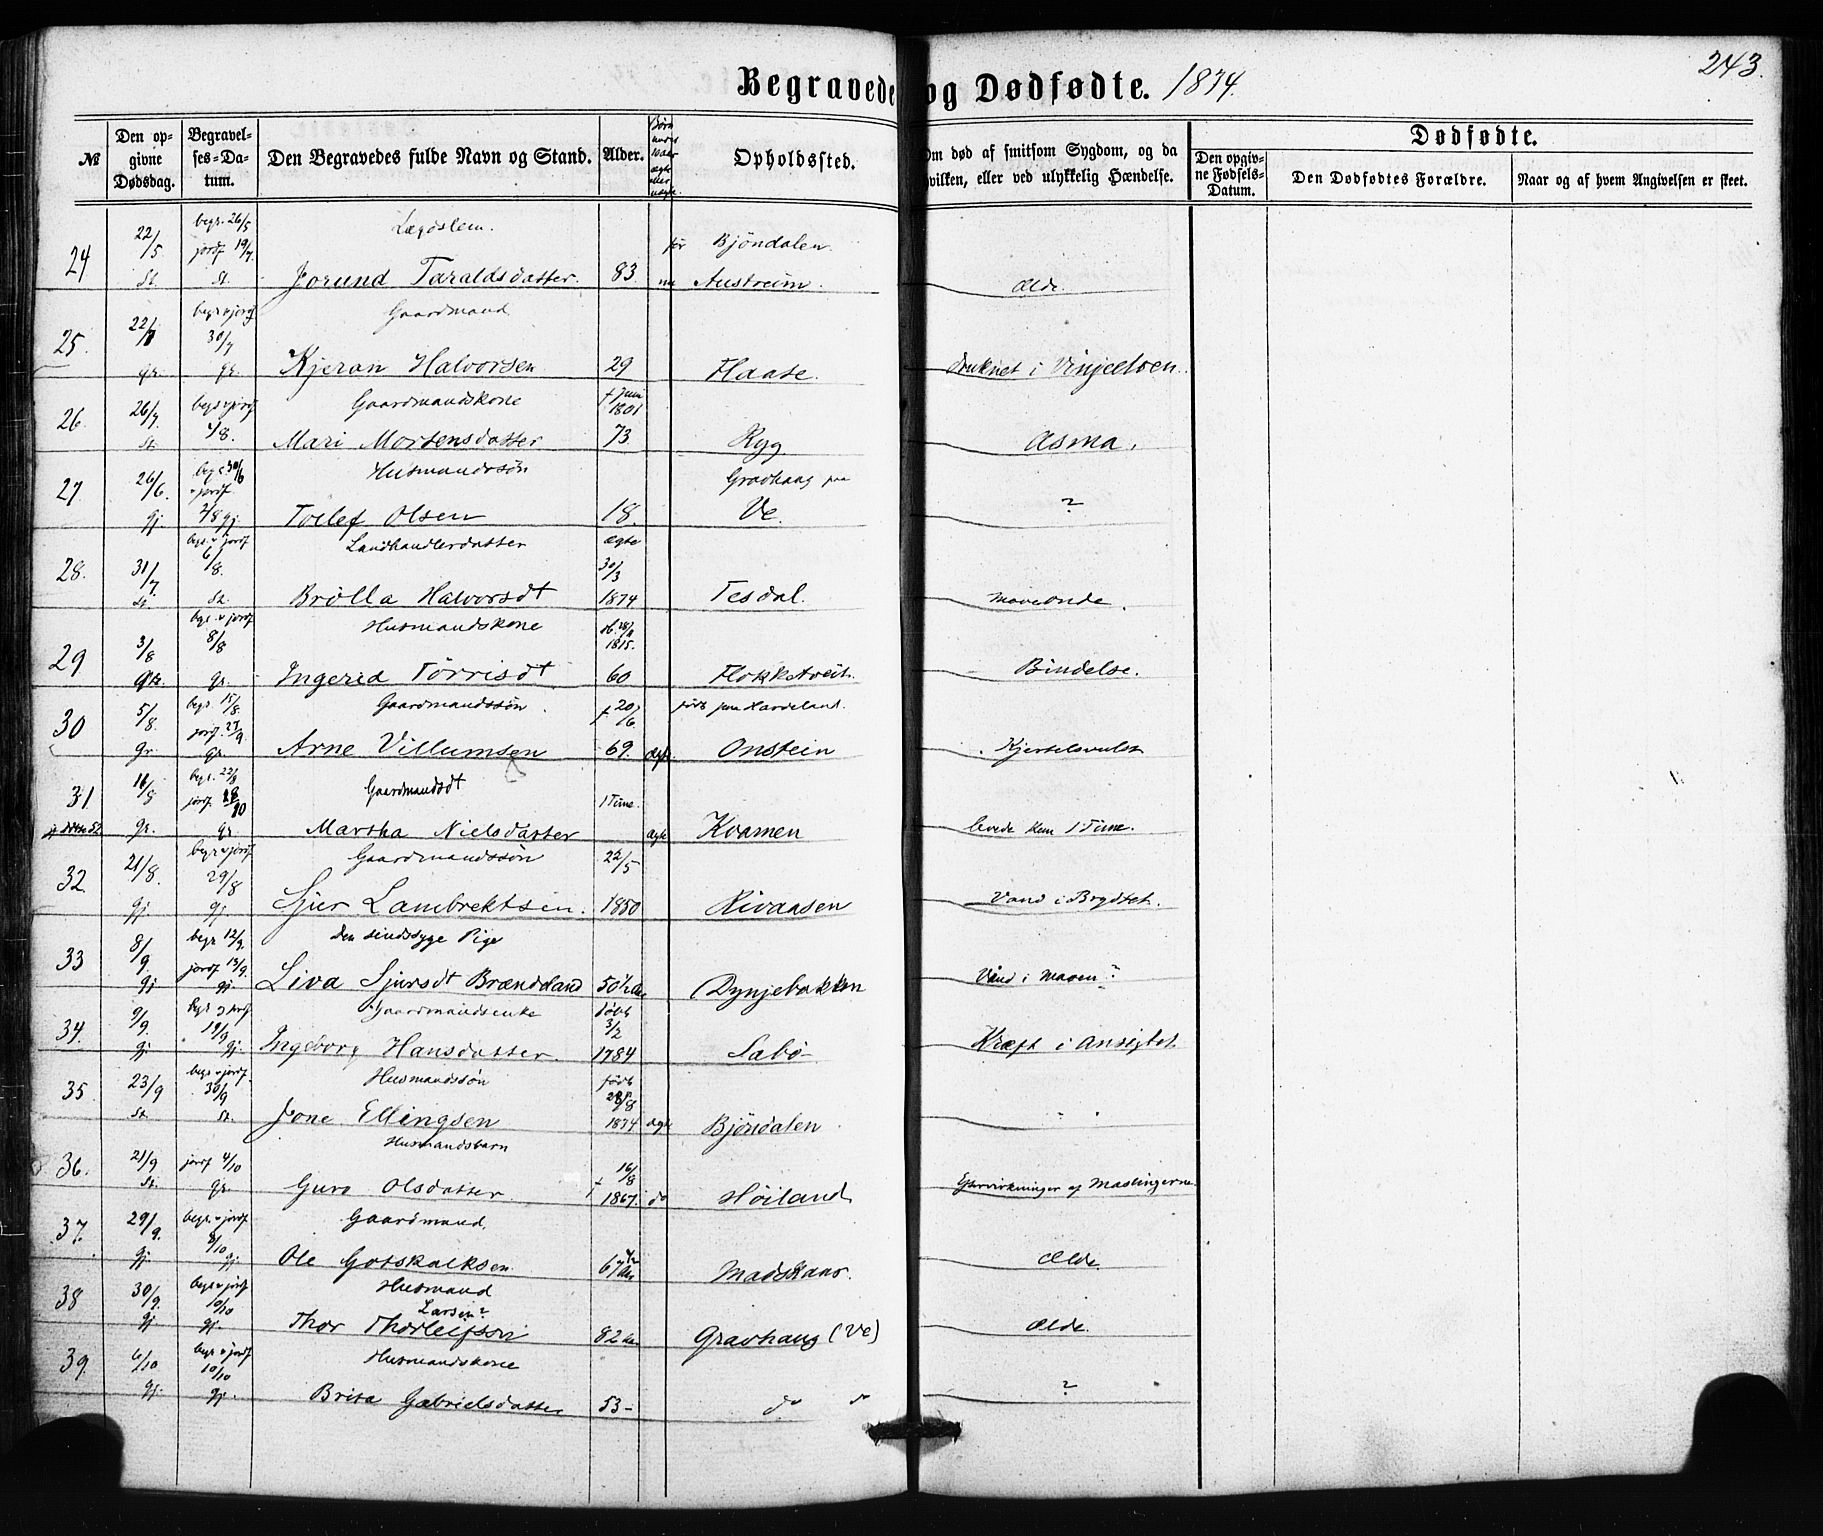 243.
Begravede og Dødfødte. 1874.
№
Den opgivne Dødsdag.
Begravelses-Datum.
Den Begravedes fulde Navn og Stand.
Alder.
Opholdssted.
Om død af smitsom Sygdom, og da hvilken, eller ved ulykkelig Hændelse.
Dødfødte.
Den opgivne Fødsels-Datum.
Den Dødfødtes Forældre.
Naar og af hvem Angivelsen er skeet.
24 22/5 begr. 26/5 jordf 19/7 Lægdslem. før Bjöndalen
St. St. Jorund Taraldsdatter. 83. nu Austreim. Ælde.
25. 22/7 begr. v jordf 30/7 Gaardmand
gr. gr. Kjeran Halvorsen 29 Flaate. Druknet i Vinjeelven.
26. 26/7 begr. v jordf 4/8. Gaardmandskone f Juni 1801
St. Mari Mortensdatter 73. Ryg Asma.
27 26/6. begr 30/6 v jordf. Husmandssön Gravhaug paa
gj. 2/8 gj. Toelef Olsen 18. Ve. ?
28. 31/7 begr. v jordf 6/8. Landhandlerdatter ægte 30/3
St. St. Brölla Halvorsdt 1874 Tesdal. Maveonde.
29 3/8 begr. v jordf 8/8 Husmandskone 1815.
gr. Ingerid Törrisdt 60 Flokketveit. Bindelse.
30 5/8. begr. 15/8 jordf. 27/9. Gaardmandssön f 20/6 född paa Hardeland.
gr. gr. Arne Villumsen 69. ægte. Onstein Kjertelsvulst
31. 16/8 begr. 22/8 jordf. 18/10 Gaardmandsdt 1 Time.
gr. gr. Martha Nielsdatter ægte Kvamen levede kun 1 Time.
32. 21/8. begr. v jordf 29/8 Gaardmandssön 22/5
gj gj. Sjur Lambrektsen. 1850 Rivaasen Vand i Brystet.
33 8/9. begr 12/9. jordf 13/9. Den sindssyge Pige
gj gj Liva Sjursdt Brændeland 50 1/2 Aar Dynjebakken Vand i Maven?
34. 9/9. begr. v jordf 19/9 Gaardmandsenke född 3/2
gj gj. Ingeborg Hansdatter. 1784 Sabö Kræft i Ansigtet
35 23/9 begr. v jordf. 30/9 Husmandssön född 28/8
St. St. Jone Ellingsen 1874 ægte Bjöndalen
36. 21/9 jordf 4/10 Husmandsbarn 16/8
St. gr. Guro Olsdatter f 1867. do Höiland Eftervirkninger af Mæslingerne
37. 29/9. begr. v jordf 8/10 Gaardmand.
gj. gj. Ole Gotskalksen 67 1/2 Aar Madskaar. Ælde.
38 30/9. begr. v jordf 10/10 Husmand Larsen?
gj. gj. Thor Thorleifson 82 Aar Gravhaug (Ve) Ælde.
39. 6/10 begr. v jordf 10/10 Husmandskone
gj. gj. Brita Gabrielsdatter 53 – do do ?